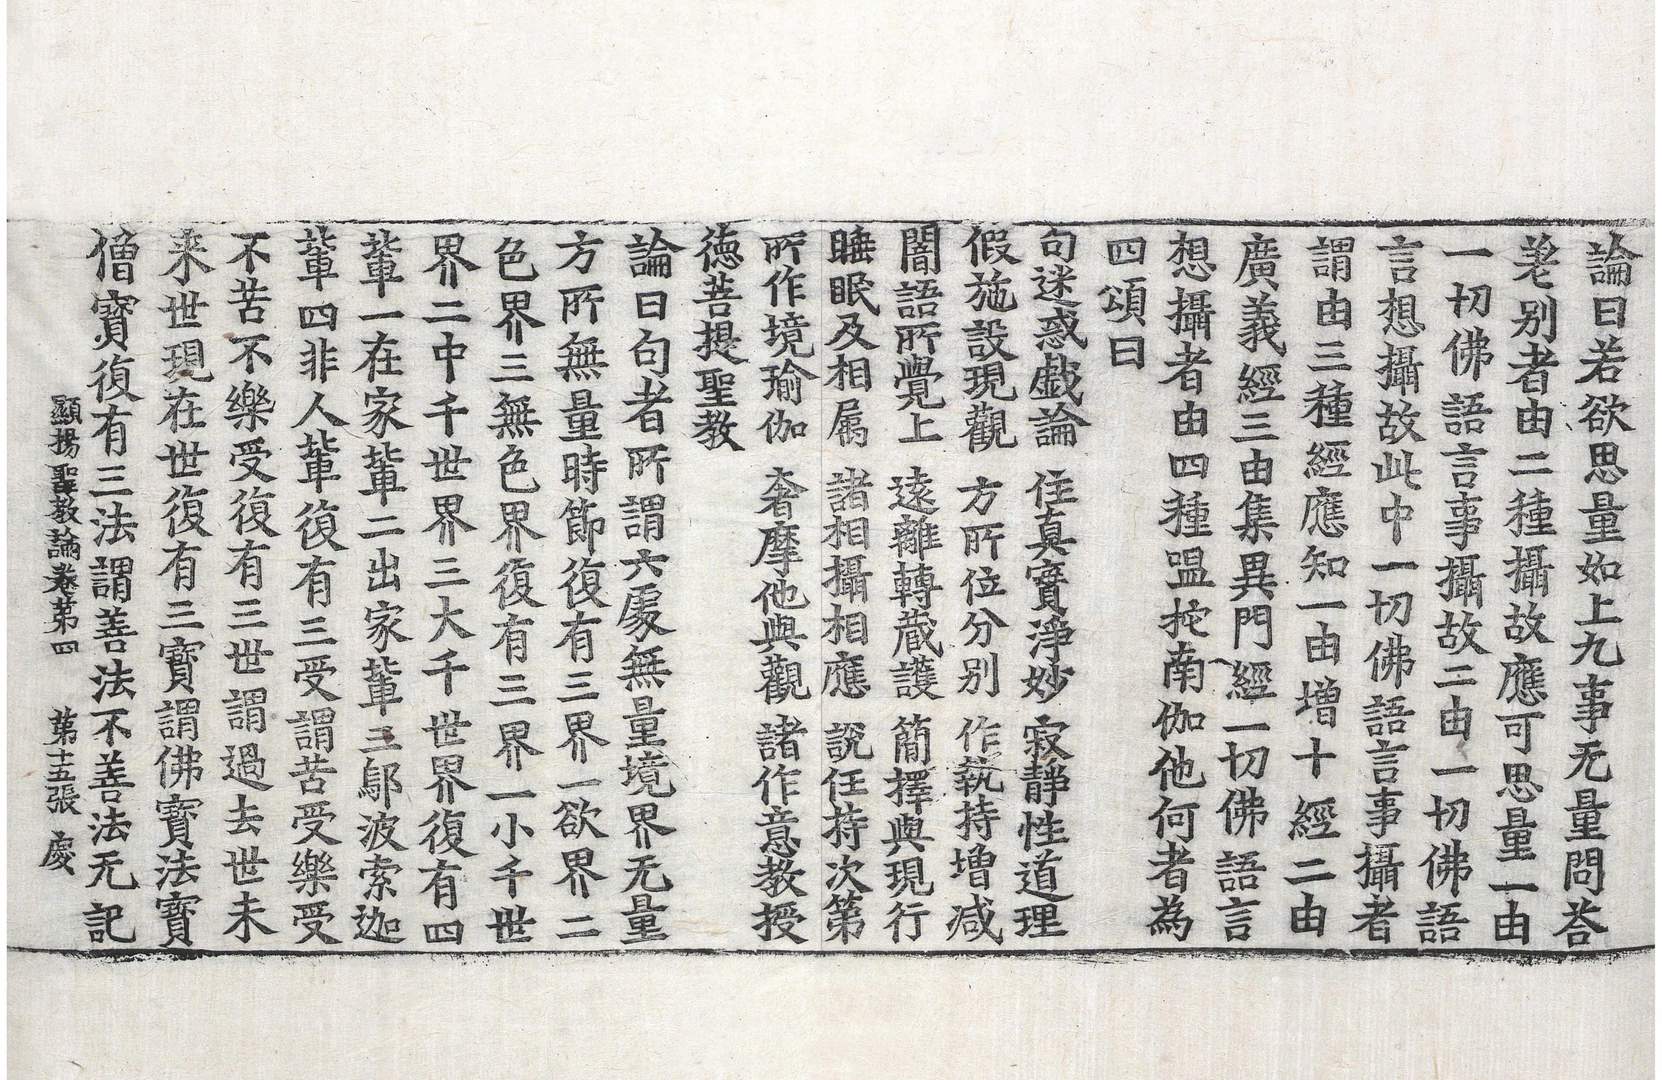 論曰若欲思量如上九事无量問荅
差别者由二種攝故應可思量一由
一切佛語言事攝故二由一切佛語
言想攝故此中一切佛語言事攝者
謂由三種經應知一由增十經二由
廣義經三由集異門經一切佛語言
想攝者由四種嗢拕南伽他何者為
四頌曰
句迷惑戲論　住真實淨妙　寂靜性道理
假施設現觀　方所位分别　作執持增减
闇語所覺上　遠離轉藏護　簡擇與現行
睡眠及相属　諸相攝相應　說任持次第
所作境瑜伽　奢摩他與觀　諸作意教授
德菩提聖教
論曰句者所謂六處無量境界无量
方所無量時節復有三界一欲界二
色界三無色界復有三界一小千世
界二中千世界三大千世界復有四
輩一在家輩二出家輩三鄔波索迦
輩四非人輩復有三受謂苦受樂受
不苦不樂受復有三世謂過去世未
来世現在世復有三寶謂佛寶法寶
僧寶復有三法謂善法不善法无記
顯揚聖教論卷第四　第十五張　處